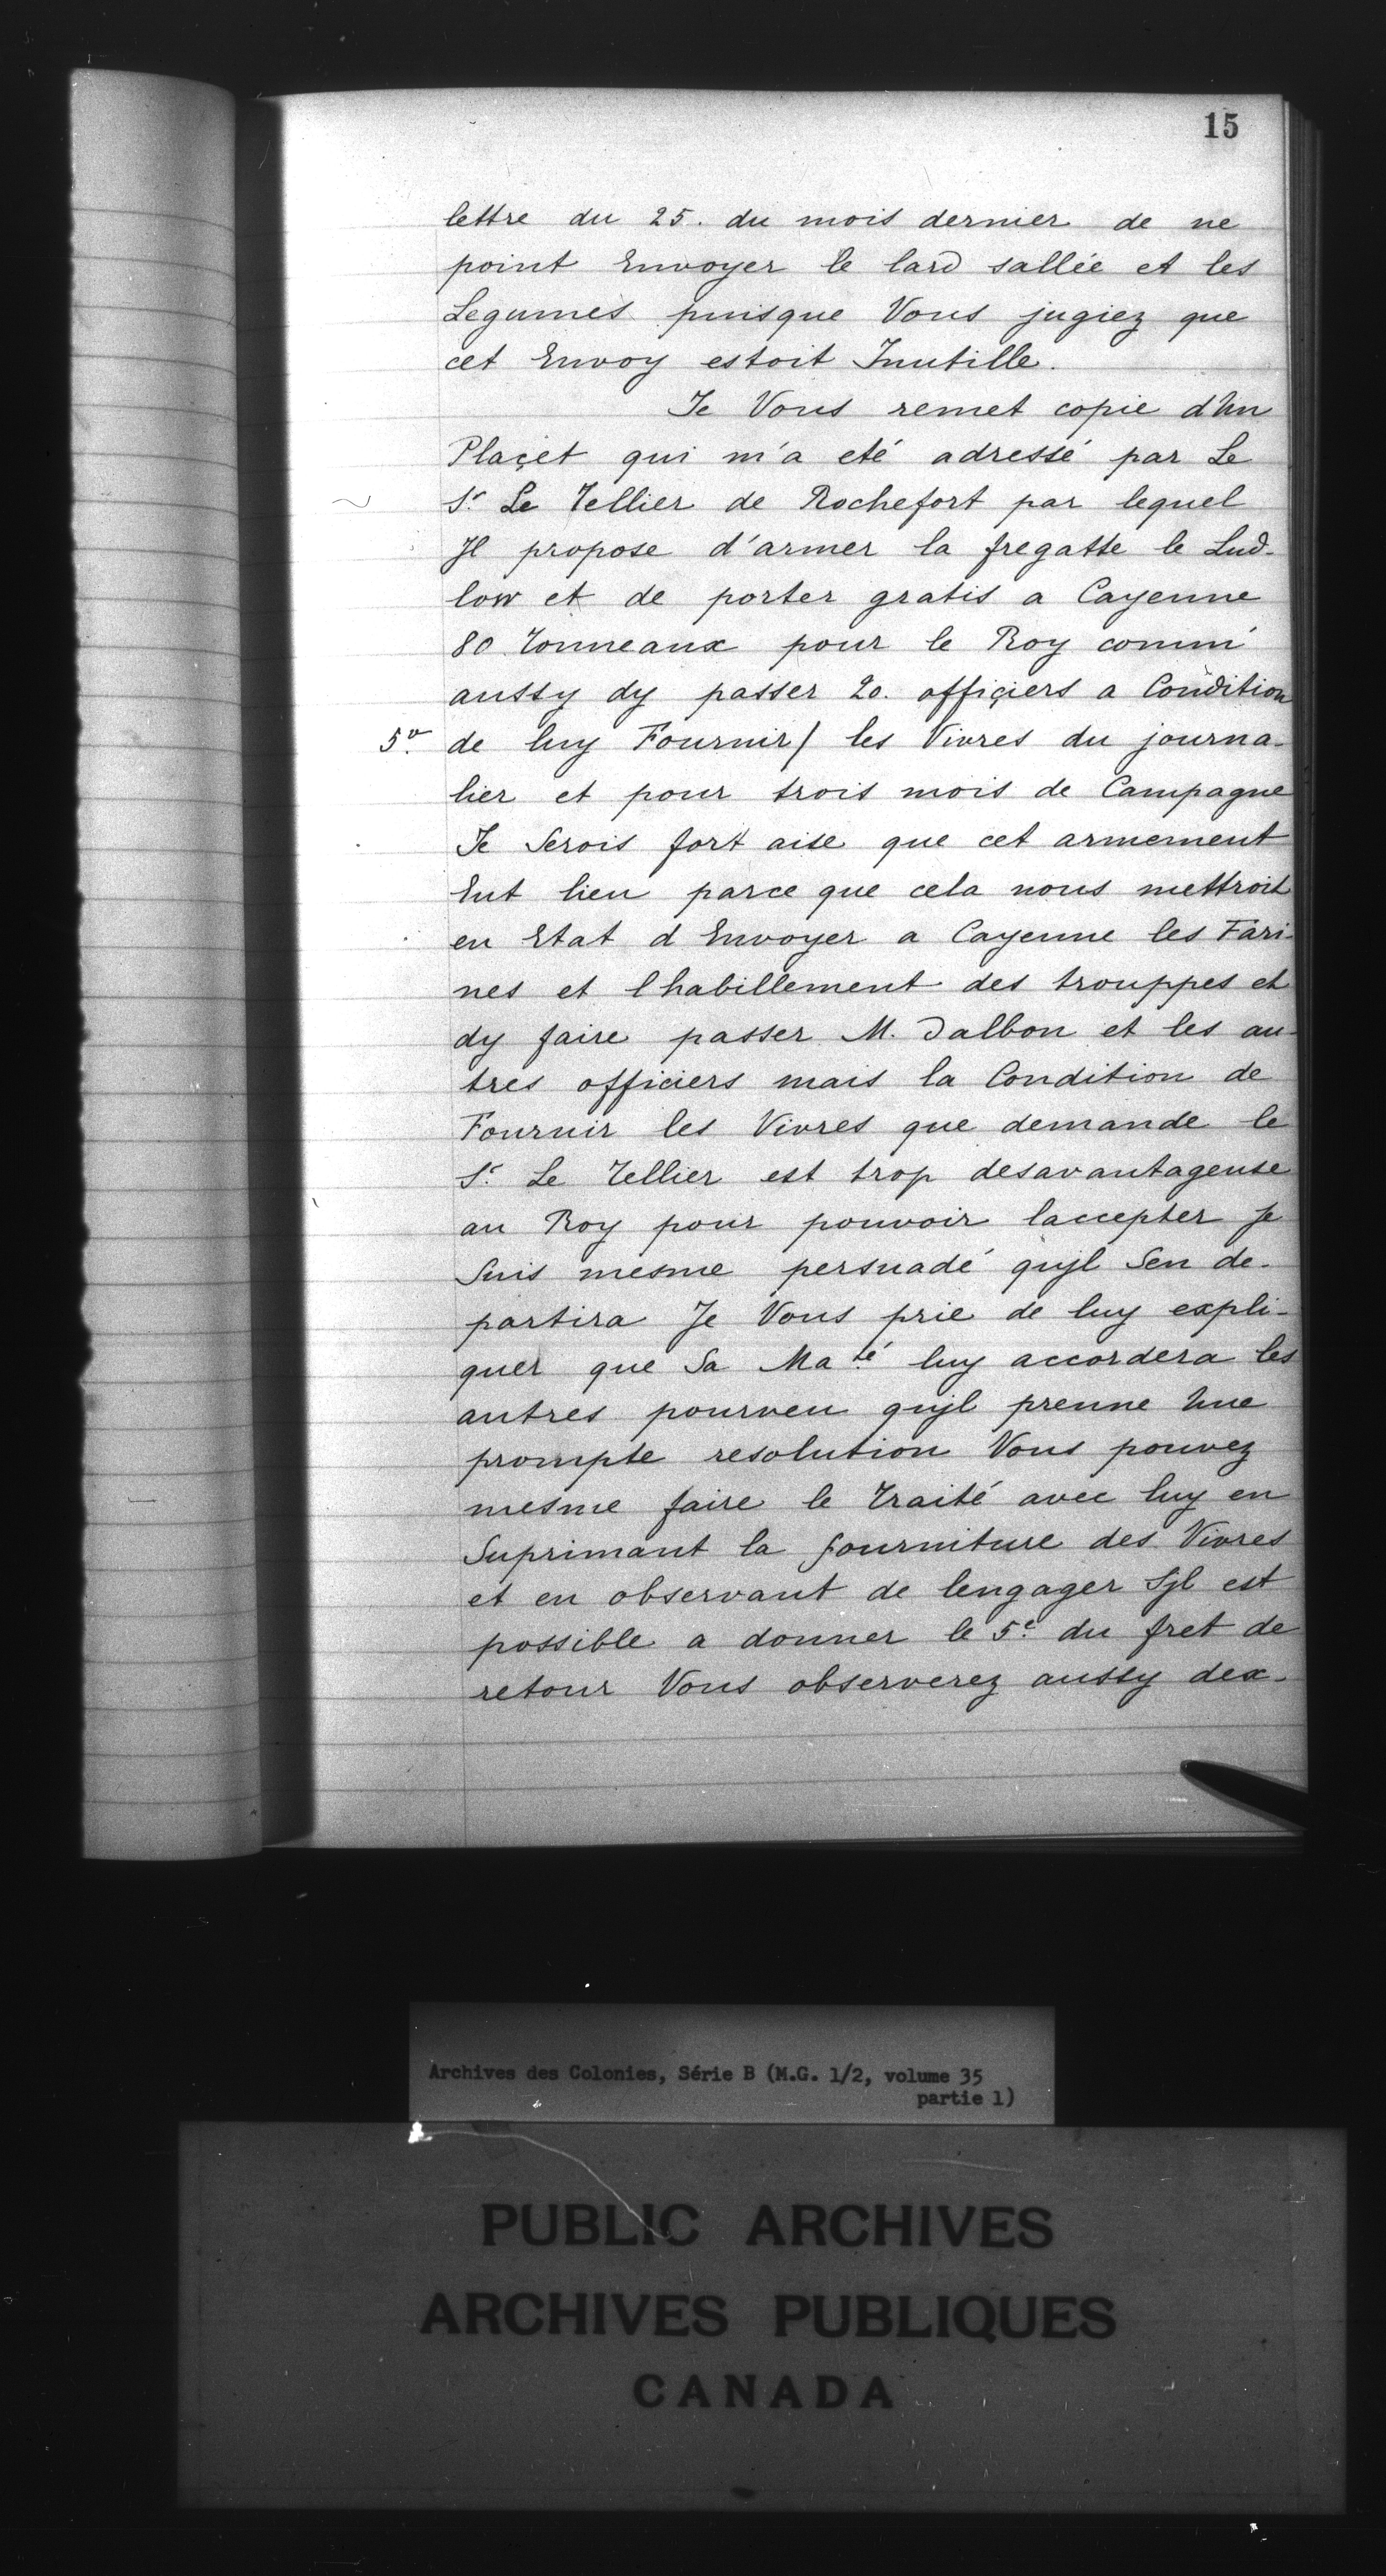 15
lettre du 25. du mois dernier de ne
point Envoyer le lard sallée et les
Legumes puisque Vous jugiez que
cet Envoy estoit Inutille.
Je Vous remet copie d'Un
Plaçet qui m'a eté adressé par Le
Sr. Le Tellier de Rochefort par lequel
Jl propose d'armer la fregatte le Lud-
low et de porter gratis a Cayenne
80. Tonneaux pour le Roy comm'
aussy dy passer 20. offiçiers a Condition
5vo. de luy Fournir/ les Vivres du journa-
lier et pour trois mois de Campagne
Je Serois fort aise que cet armement
Eut lieu parce que cela nous mettroit
en Etat d Envoyer a Cayenne les Fari-
nes et lhabillement des trouppes et
dy faire passer M. Dalbon et les au-
tres officiers mais la Condition de
Fournir les Vivres que demande le
Sr. Le Tellier est trop desavantageuse
au Roy pour pouvoir laccepter Je
Suis mesme persuadé qujl Sen de-
partira Je Vous prie de luy expli-
quer que Sa Maté. luy accordera les
autres pourveu qujl prenne Une
prompte resolution Vous pouvez
mesme faire le Traité avec luy en
Suprimant la fourniture des Vivres
et en observant de lengager Sjl est
possible a donner le 5e. du fret de
retour Vous observerez aussy dex-
Archives des Colonies, Série B (M.G. 1/2, volume 35
partie 1)
PUBLIC ARCHIVES
ARCHIVES PUBLIQUES
CANADA